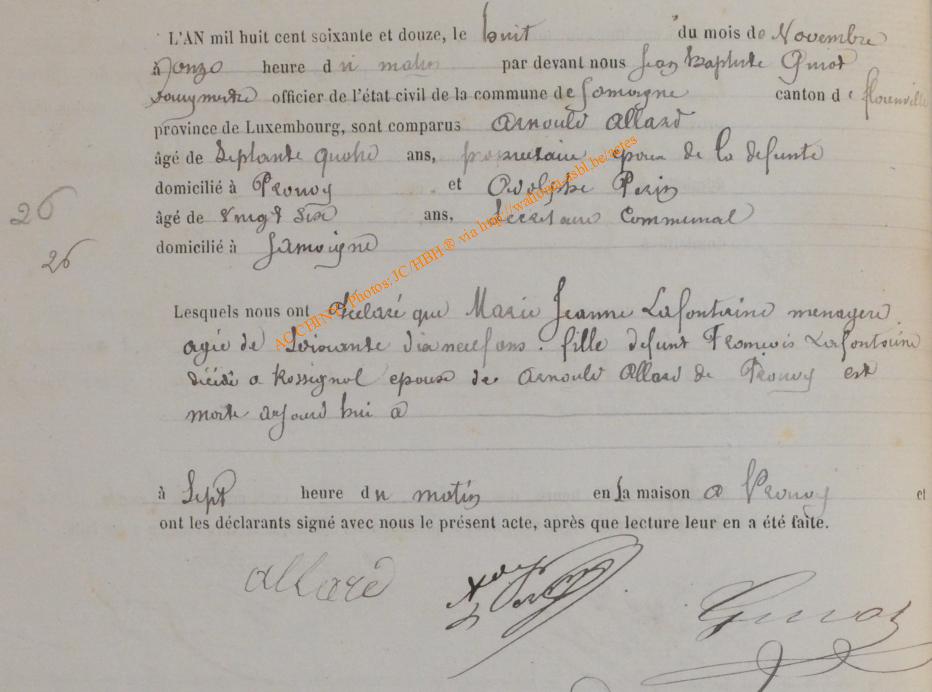 L'AN mil huit cent soixante et douze, le huit du mois de Novembre
à onze heure du matin par devant nous Jean Baptiste Guiot
Bourgmestre officier de l'état civil de la commune de Jamoigne canton de florenville
province de Luxembourg, sont comparus Arnould Allard
âgé de Septante quatre ans, proprietaire epoux de la defunte
domicilié à Prouvy et Adolphe Perin
26
âgé de vingt six ans, Secretaire Communal
26
domicilié à Jamoigne
AC CHINY, Photos: JC /HBH ® via http://wallonia-asbl.be/actes
Lesquels nous ont déclaré que Marie Jeanne Lafontaine menagere
agée de Soixante dix neuf ans. fille defunt Francois Lafontaine
décédé a Rossignol epouse de Arnould Allard de Prouvy est
morte aujourd hui a
à Sept heure du matin en sa maison a Prouvy et
ont les déclarants signé avec nous le présent acte, après que lecture leur en a été faite.
Allard
Perin
Guiot